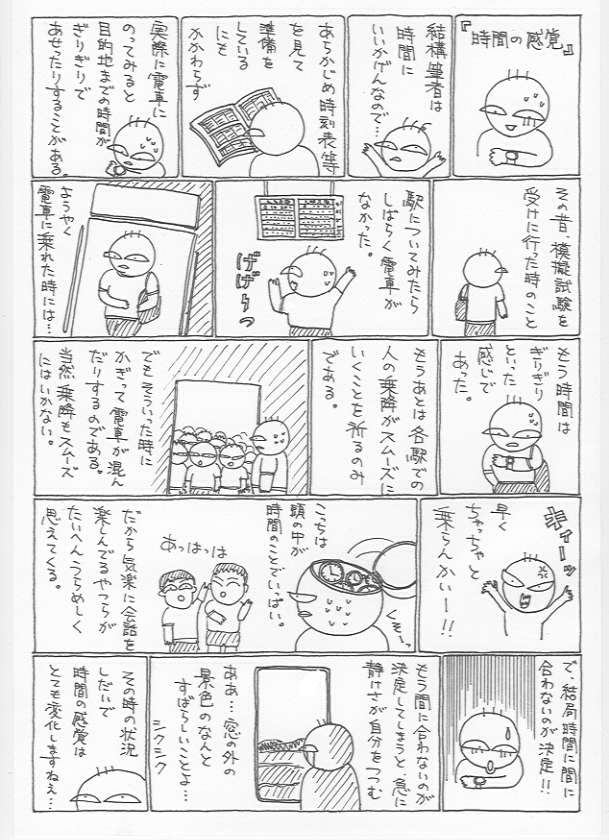 『時間の感覚』
結構筆者は
時間に
いいかげんなので…
あらかじめ時刻表等
を見て
準備を
している
にも
かかわらず
実際に電車に
のってみると
目的地までの時間が
ぎりぎりで
あせったりすることがある。
その昔、模擬試験を
受けに行った時のこと
駅についてみたら
しばらく電車が
なかった。
げげーっ
ようやく
電車に乗れた時には…
もう時間は
ぎりぎり
といった
感じで
あった。
もうあとは各駅での
人の乗降がスムーズに
いくことを祈るのみ
である。
でもそういった時に
かぎって電車が混ん
だりするのである。
当然乗降もスムーズ
にはいかない。
キィーッ
早く
ちゃっちゃと
乗らんかいー!!
こっちは
頭の中が
時間のことでいっぱい。
くそーっ
あっはっは
だから気楽に会話を
楽しんでるやつらが
たいへんうらめしく
思えてくる。
で、結局時間に間に
合わないのが決定!!
もう間に合わないのが
決定してしまうと急に
静けさが自分をつつむ
ああ…窓の外の
景色のなんと
すばらしいことよ…
シクシク
その時の状況
しだいで
時間の感覚は
とても変化しますねぇ…